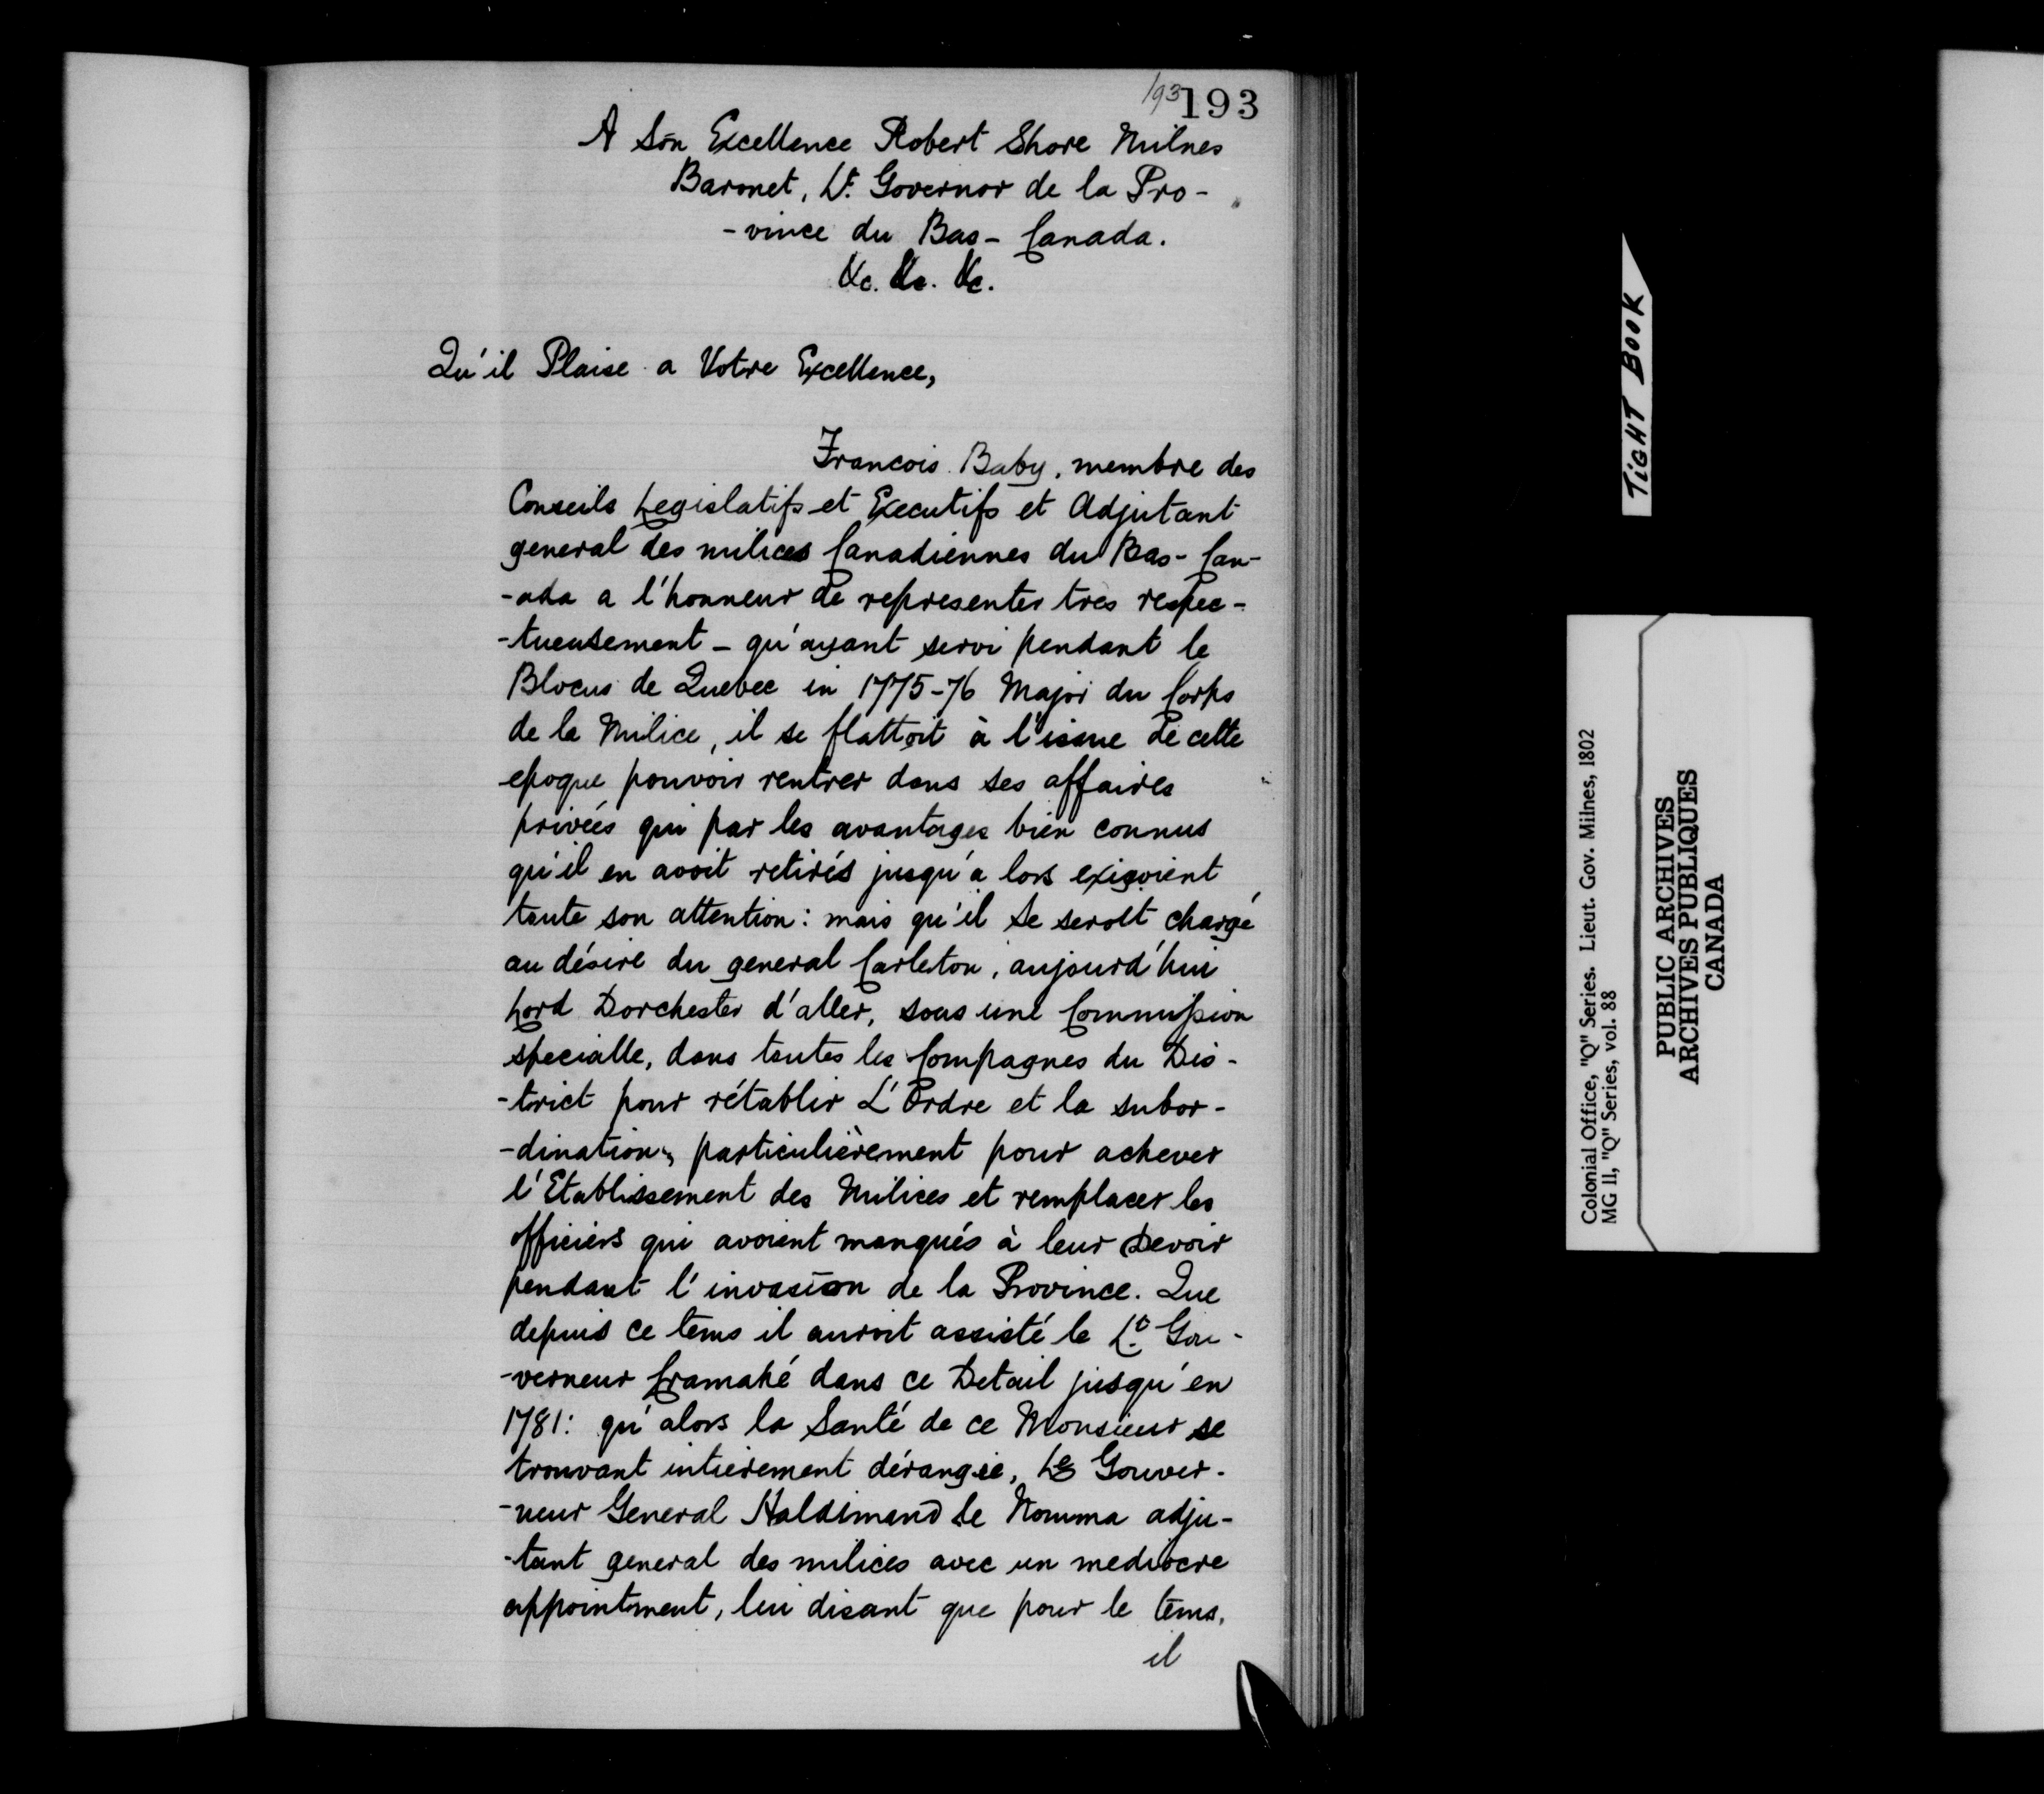 193 193
A Son Excellence Robert Shore Milnes
Baronet, Lt. Governor de la Pro-
-vince du Bas-Canada.
&c. &c. &c.
Qu'il Plaise a Votre Excellence,
Francois Baby, membre des
Conseils Legislatifs et Executifs et Adjutant
general des milices Canadiennes du Bas-Can-
-ada a l'honneur de representer tres respec-
-tueusement - qu'ayant servi pendant le
Blocus de Quebec in 1775-76 Major du Corps
de la Milice, il se flattoit à l'issue de cette
epoque pouvoir rentrer dans ses affaires
privées qui par les avantages bien connus
qu'il en avoit retirés jusqu'a lors exigoient
toute son attention: mais qu'il se seroit chargé
au désire du general Carleton, aujourd'hui
Lord Dorchester d'aller, sous une Commission
specialle, dans toutes les Compagnes du Dis-
-trict pour rétablir L'Ordre et la subor-
-dination, particulièrement pour achever
l'Etablissement des Milices et remplacer les
officiers qui avoient manqués à leur Devoir
pendant l'invasion de la Province. Que
depuis ce tems il auroit assisté le Lt. Gou-
-verneur Cramahé dans ce Detail jusqu'en
1781: qu'alors la Santé de ce Monsieur se
trouvant intièrement dérangée, Le Gouver-
-neur General Haldimand le Nomma adju-
-tant general des milices avec un mediocre
appointment, lui disant que pour le tems,
il
TIGHT BOOK
Colonial Office, "Q" Series. Lieut. Gov. Milnes, 1802
MG 11, "Q" Series, vol. 88
PUBLIC ARCHIVES
ARCHIVES PUBLIQUES
CANADA